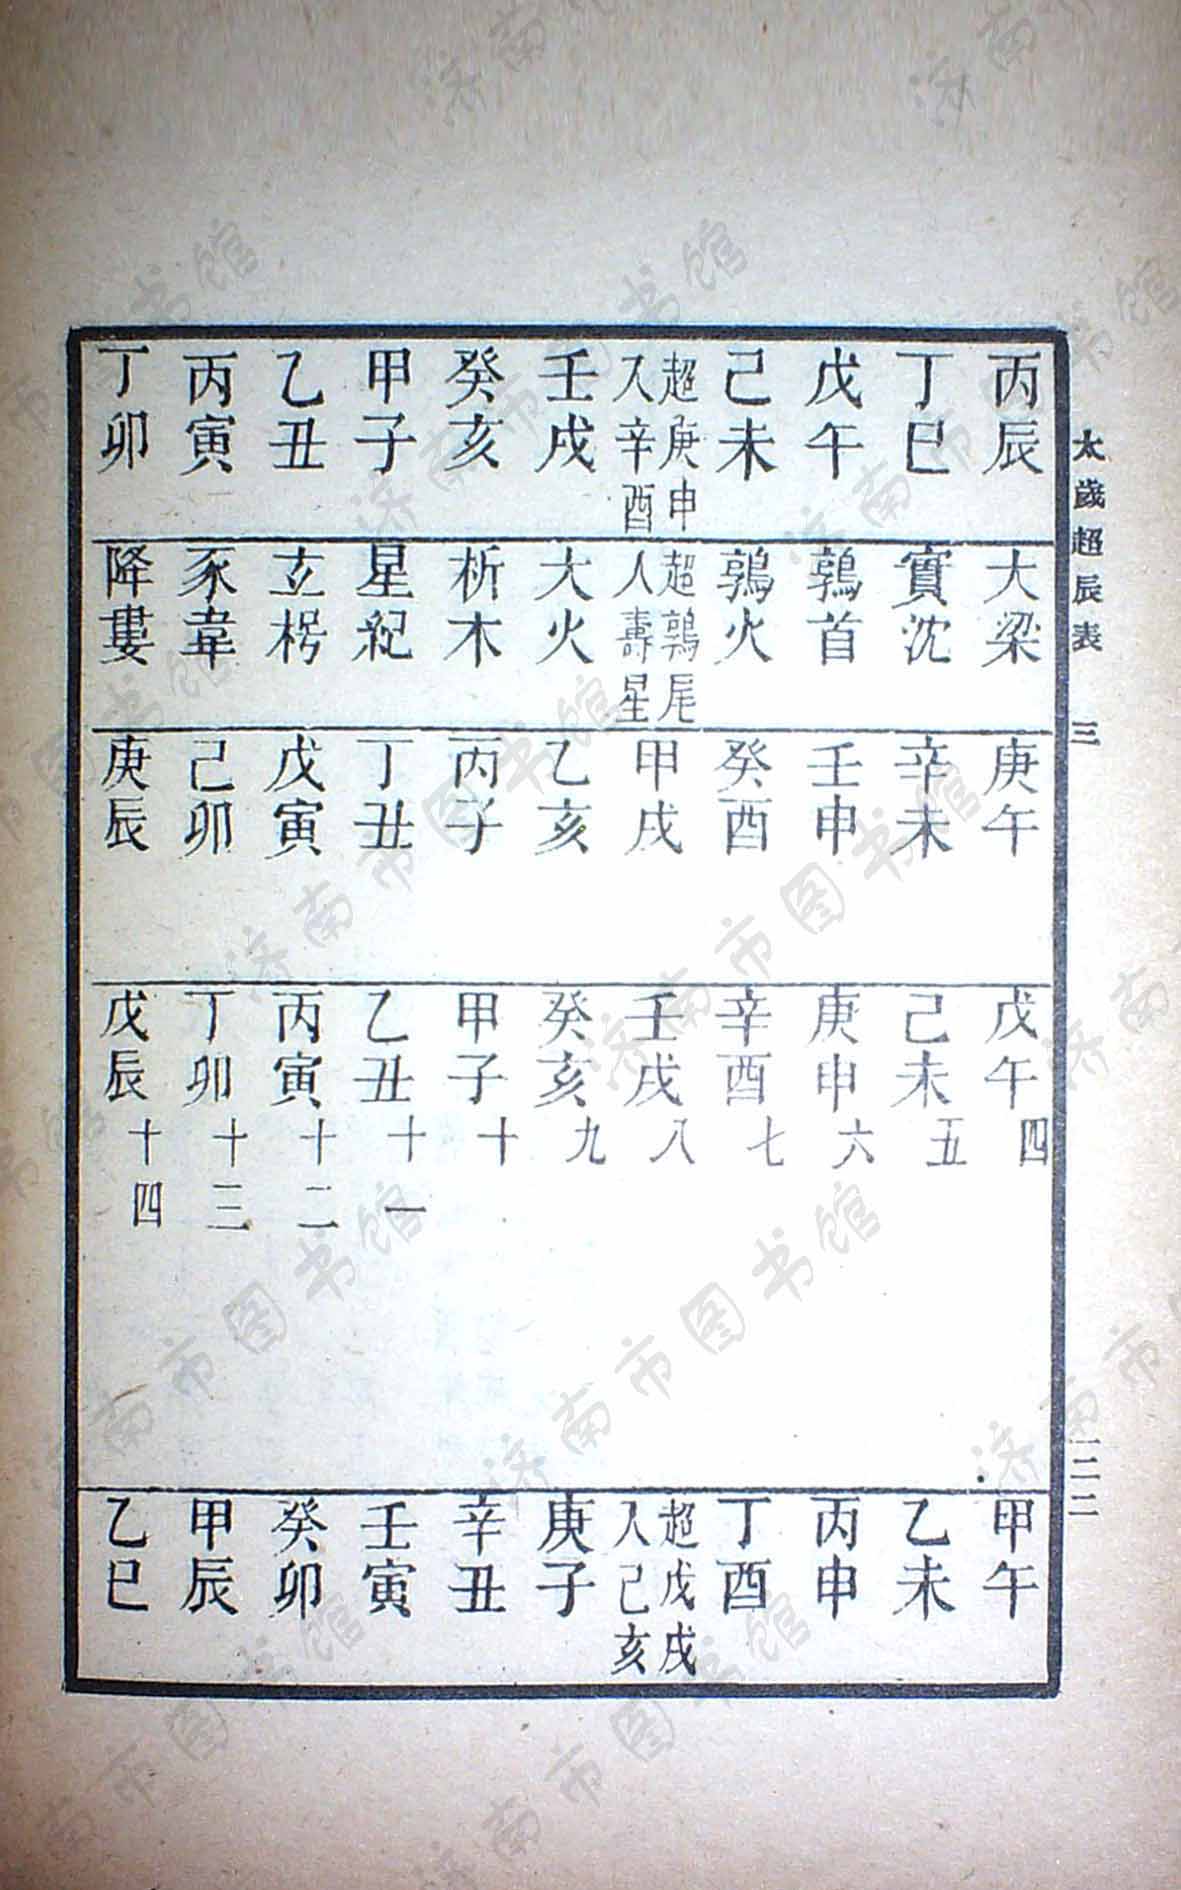 太歲超辰表 三 一二二
丙辰 大梁 庚午 戊午 四 甲午
丁巳 實沈 辛未 己未 五 乙未
戊午 鶉首 壬申 庚申 六 丙申
己未 鶉火 癸酉 辛酉 七 丁酉
超庚申入辛酉 超鶉尾入壽星 甲戌 壬戌 八 超戊戌入己亥
壬戌 大火 乙亥 癸亥 九 庚子
癸亥 析木 丙子 甲子 十 辛丑
甲子 星紀 丁丑 乙丑 十一 壬寅
乙丑 玄枵 戊寅 丙寅 十二 癸卯
丙寅 豕韋 己卯 丁卯 十三 甲辰
丁卯 降婁 庚辰 戊辰 十四 乙巳
济南市图书馆